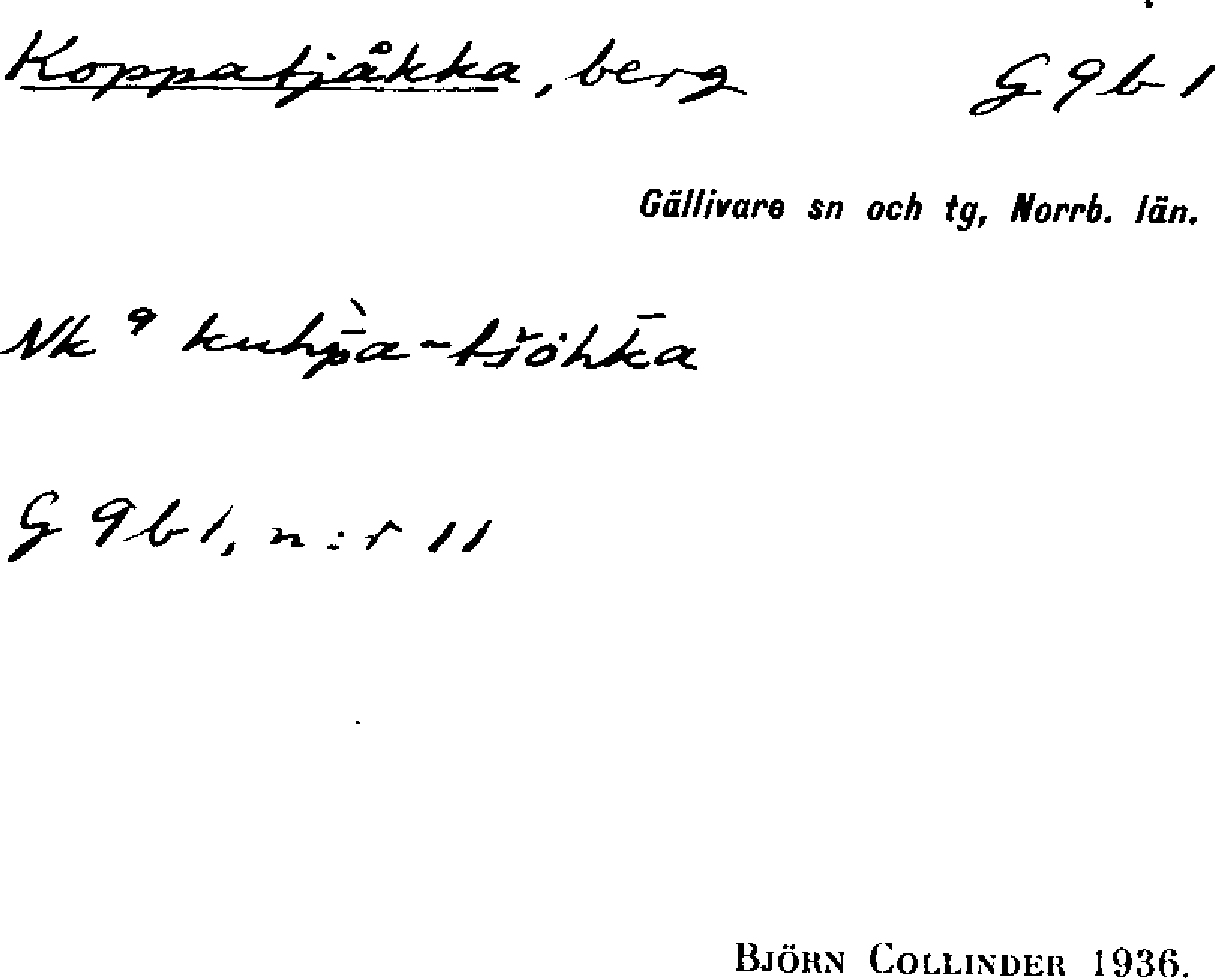 Koppatjåkka, berg G 9 b 1
Gällivare sn och tg, Norrb. län.
Nk 9 kuhp̄̀a-tšöhk̄a
G 9 b 1, n:r 11
BJÖRN COLLINDER 1936.